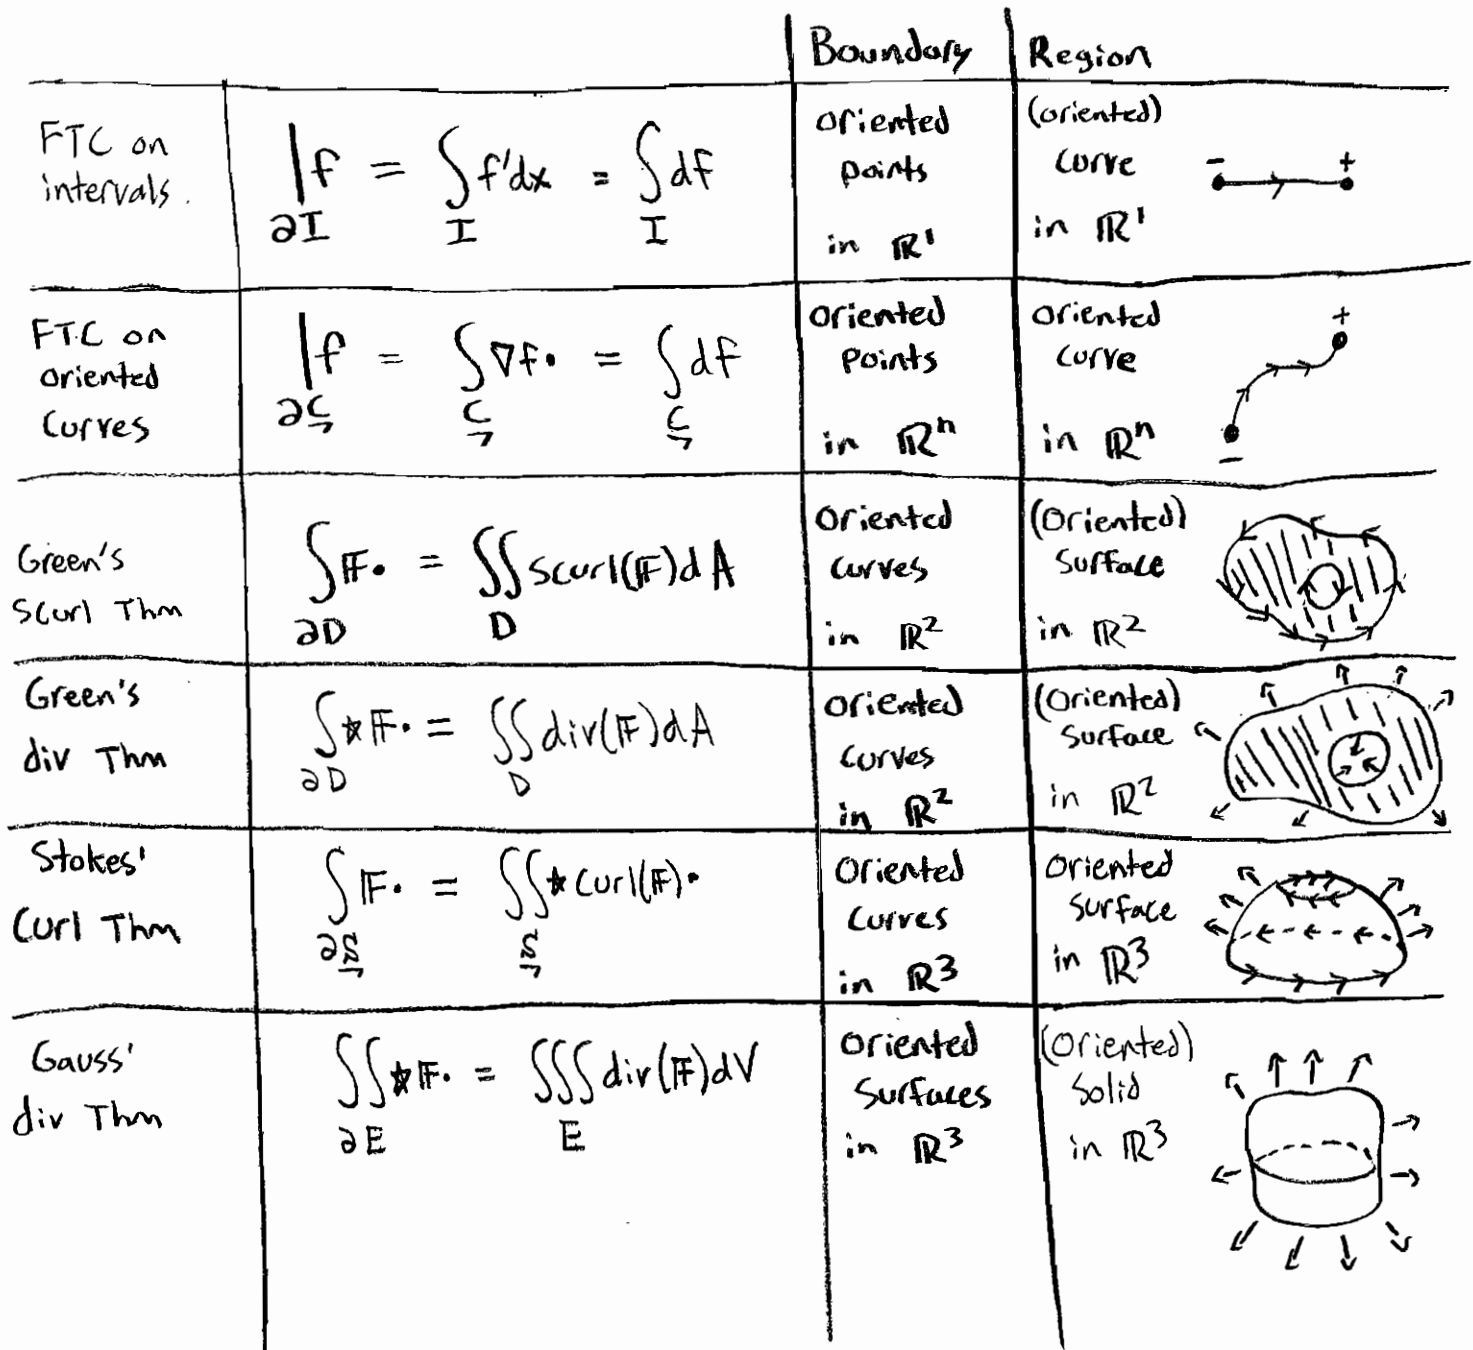 Boundary Region
FTC on
intervals.
|f = ∫f'dx = ∫df
∂I I I
oriented
points
in ℝ¹
(oriented)
curve
in ℝ¹
- +
FTC on
oriented
curves
|f = ∫∇f• = ∫df
∂C C C
oriented
points
in ℝⁿ
oriented
curve
in ℝⁿ
+
-
Green's
scurl Thm
∫𝔽• = ∬scurl(𝔽)dA
∂D D
oriented
curves
in ℝ²
(oriented)
surface
in ℝ²
Green's
div Thm
∫★𝔽• = ∬div(𝔽)dA
∂D D
oriented
curves
in ℝ²
(oriented)
surface
in ℝ²
Stokes'
Curl Thm
∫𝔽• = ∬★curl(𝔽)•
∂S S
oriented
curves
in ℝ³
oriented
surface
in ℝ³
Gauss'
div Thm
∬★𝔽• = ∭div(𝔽)dV
∂E E
oriented
surfaces
in ℝ³
(oriented)
solid
in ℝ³